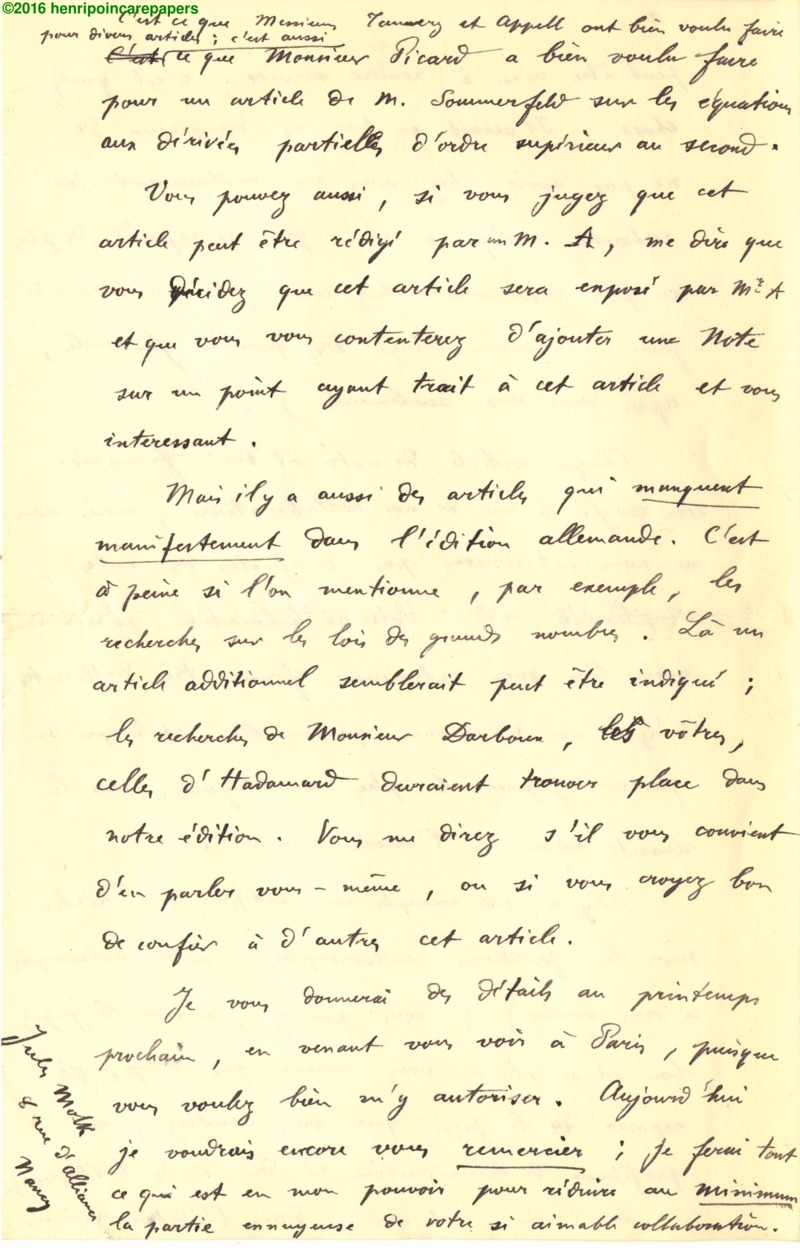 ©2016 henripoincarepapers
C'est ce que Messieurs Tannery et Appell ont bien voulu faire
pour divers articles ; c'est aussi
C'est ce que Monsieur Picard a bien voulu faire
pour un article de M. Sommerfeld sur les équations
aux dérivées partielles d'ordre supérieur au second.
Vous pouvez aussi, si vous jugez que cet
article peut être rédigé par un M. A, me dire que
vous décidez que cet article sera exposé par Mr A
et que vous vous contenterez d'ajouter une Note
sur un point ayant trait à cet article et vous
intéressant.
Mais il y a aussi des articles qui manquent
manifestement dans l'édition allemande. C'est
à peine si l'on mentionne, par exemple, les
recherches sur les lois des grands nombres. Là un
article additionnel semblerait peut être indiqué ;
les recherches de Monsieur Darboux, les vôtres,
celles d'Hadamard devraient trouver place dans
notre édition. Vous me direz s'il vous convient
d'en parler vous-même, ou si vous croyez bon
de confier à d'autres cet article.
Je vous donnerai des détails au printemps
prochain, en venant vous voir à Paris, puisque
vous voulez bien m'y autoriser. Aujourd'hui
je voudrais encore vous remercier ; je ferai tout
ce qui est en mon pouvoir pour réduire au minimum
la partie ennuyeuse de votre si aimable collaboration.
Jules Molk
8 rue d'alliance
Nancy